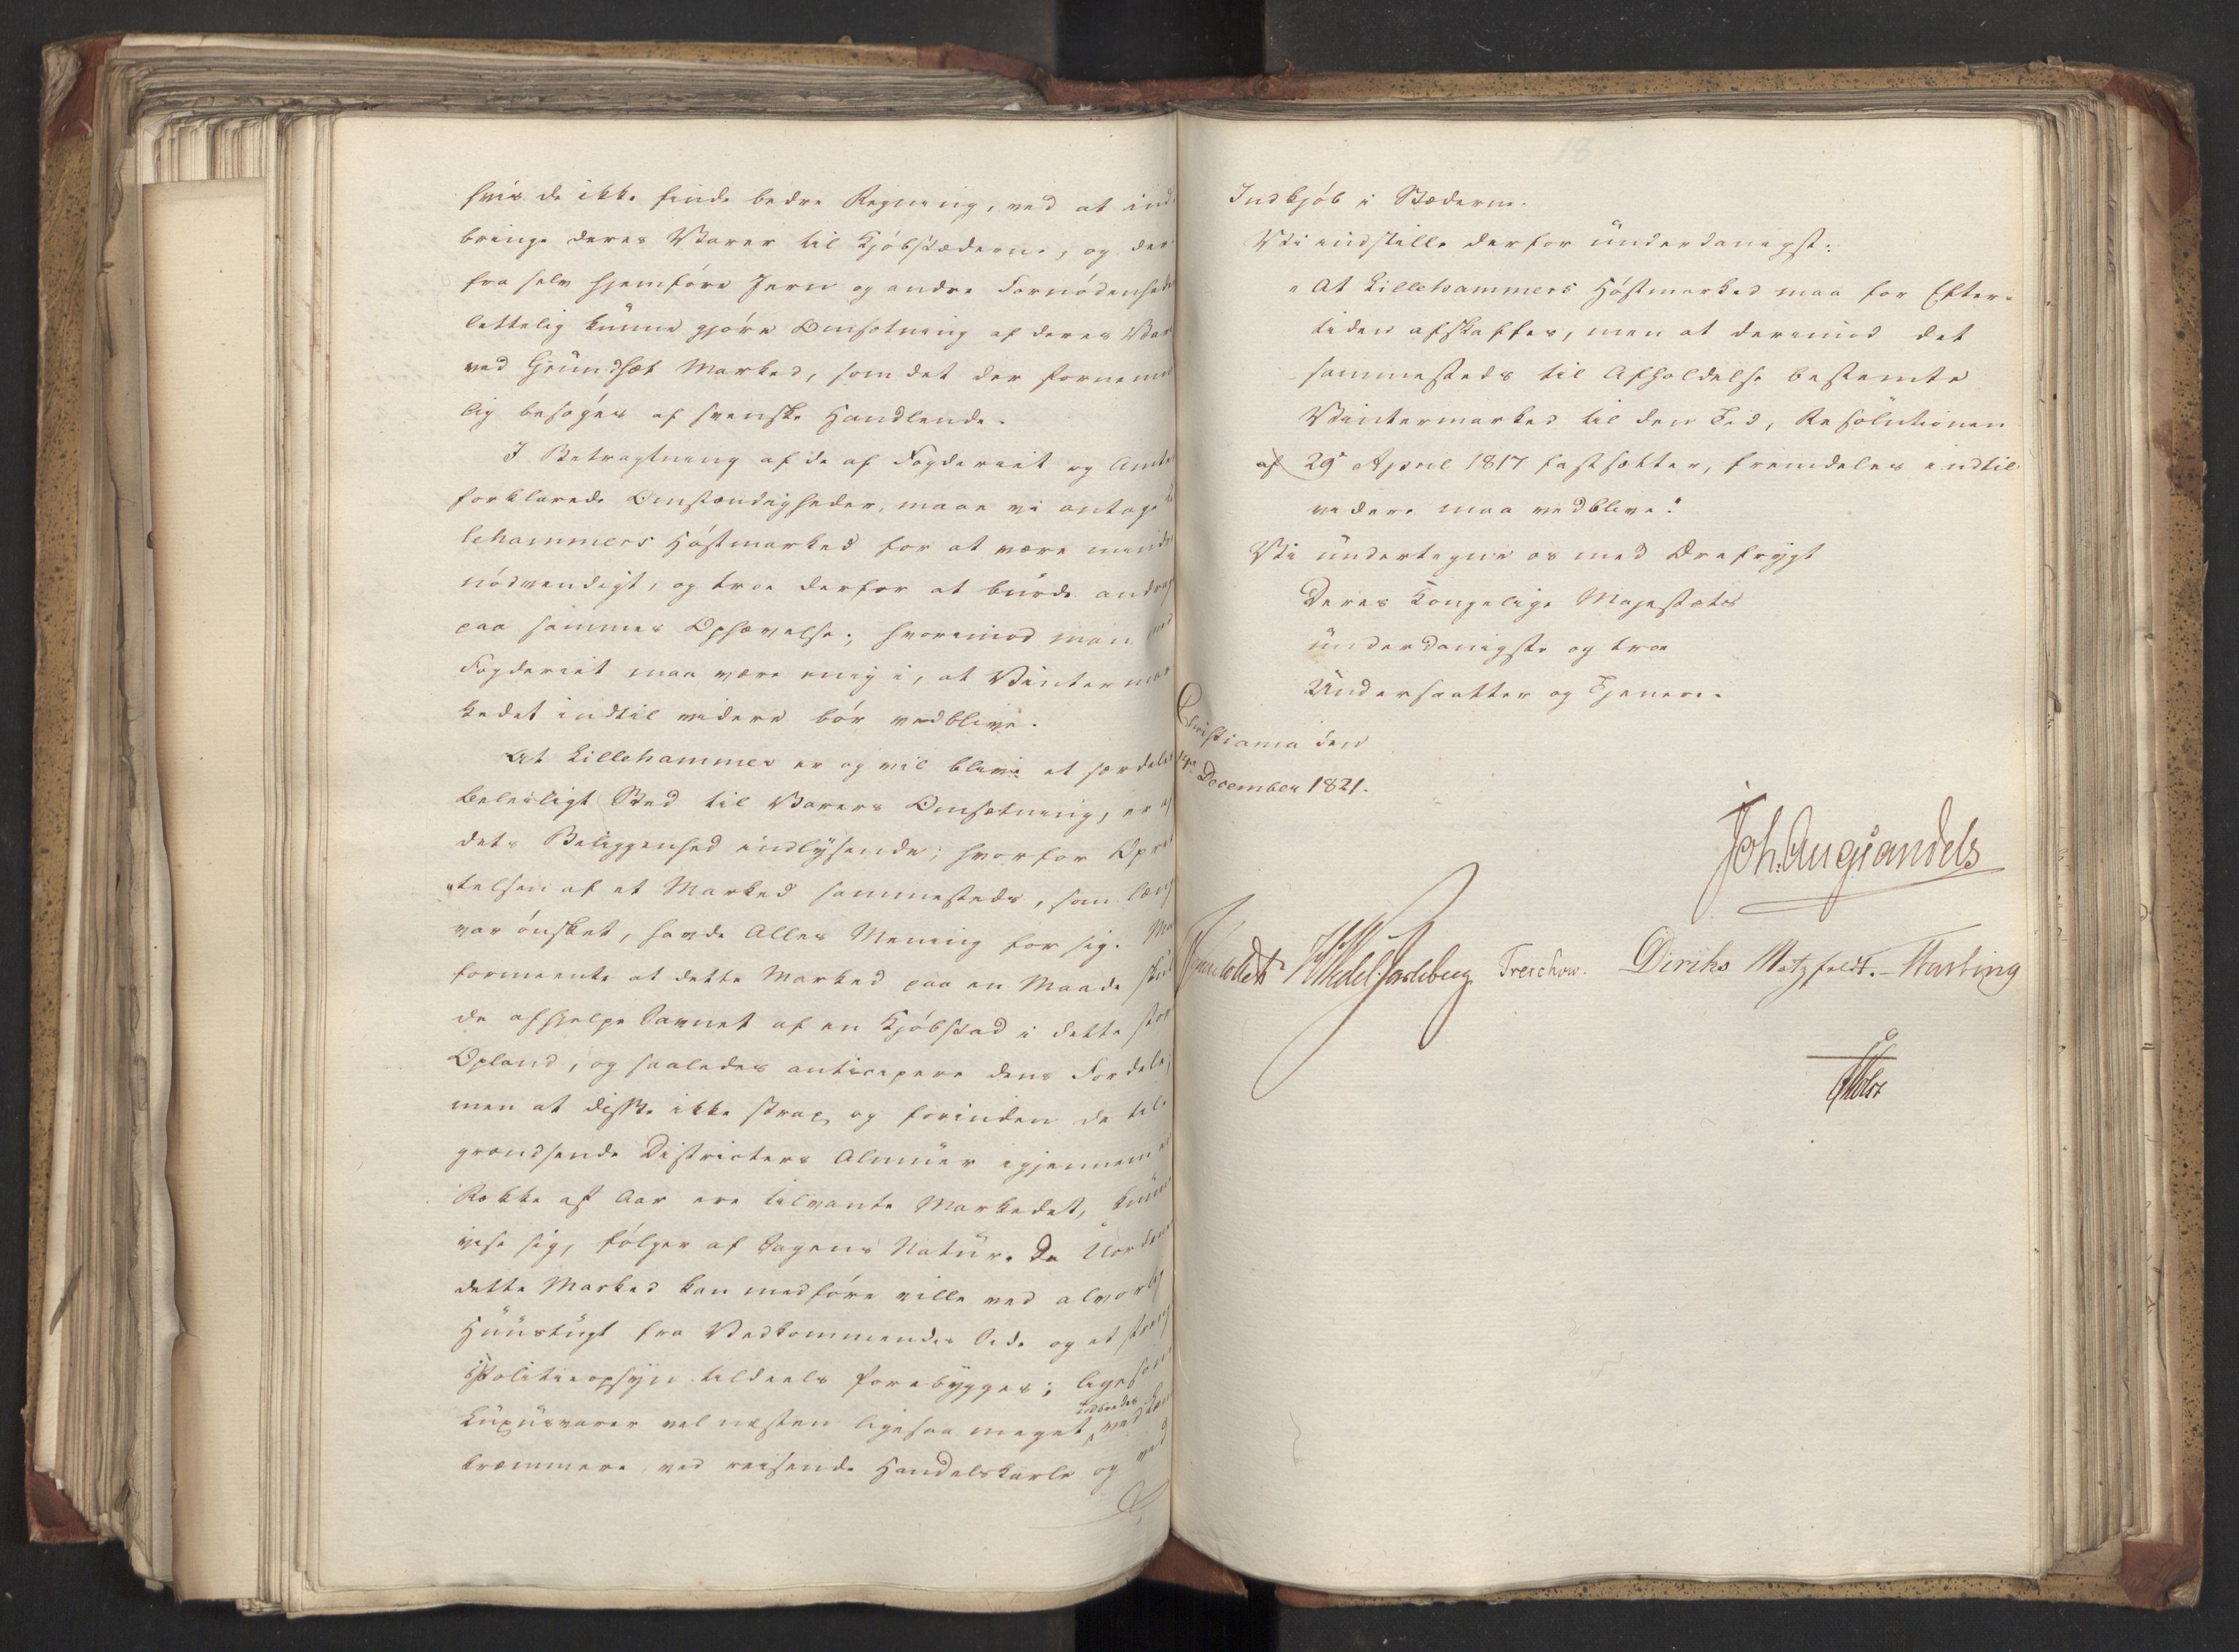 hvis de ikke finde bedre Regning, ved at ind-
bringe deres Varer til Kjöbstæderne, og der-
fra selv hjemföre Jern og andre Fornödenheder
lettelig kunne gjöre Omsætning af deres Var
ved Grundset Marked, som det der fornemme
lig besöges af svenske Handlende.
I Betragtning af de af Fogderiet og Amtet
forklarede Omstændigheder, maae vi antage
lehammers Höstmarked for at være mindre
nödvendigt, og troe derfor at burde andrage
paa sammes Ophævelse; hvorimod man med
Fogderiet maa være enig i, at Vintermar
kedet indtil videre bör vedblive.
At Lillehammer er og vil blive et særdeles
beleiligt Sted til Varers Omsætning, er af
dets Beliggenhed indlysende; hvorfor Opret
telsen af et Marked sammesteds, som længe
var önsket, havde Alles Mening for sig. Ma
formeente at dette Marked paa en Maade skul
de afhjelpe Savnet af en Kjöbstad i dette store
Opland, og saaledes anticipere dens Fordele;
men at disse ikke strax og forinden de til-
grændsende Districters Almuer igjennem en
Række af Aar ere tilvante Markedet, kunne
vise sig, fölger af Sagens Natur. De Uordener
dette Marked kan medföre ville ved alvorlig
Huustugt fra Vedkommendes Side og et strengt
Politieopsyn tildeels forebygges; ligesom
Luxusvarer vel næsten ligesaa meget udbredes ved
kræmmere, ved reisende Handelskarle og ved
18
Indkjöb i Stæderne.
Vi indstille derfor underdanigst:
"At Lillehammers Höstmarked maa for Efter-
tiden afskaffes, men at derimod det
sammesteds til Afholdelse bestemte
Vintermarked til den Tid, Resolutionen
af 29 April 1817 fastsætter, fremdeles indtil
videre maa vedblive."
Vi undertegne os med Ærefrygt
Deres Kongelige Majestæts
underdanigste og troe
Undersaatter og Tjenere.
Christiania den
14de December 1821.
Joh. Aug Sandels
Collett HWedel Jarlsberg Treschow. Diriks Motzfeldt. Fasting
Holst